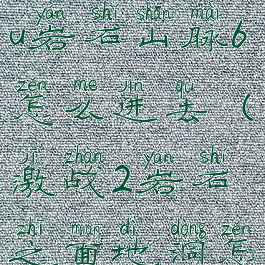 yán shí shān mài
u岩石山脉6
zěn me jìn qù
怎么进去(
jī zhàn yán shí
激战2岩石
zhī miàn dì dòng zěn
之面地洞怎